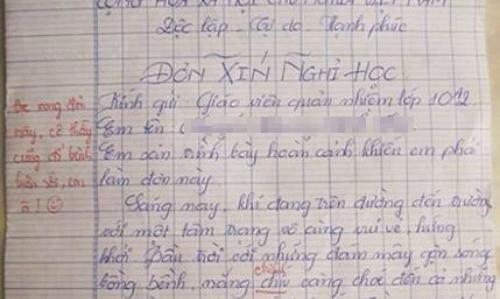 CỘNG HÒA XÃ HỘI CHỦ NGHĨA VIỆT NAM
Độc lập - Tự do - Hạnh phúc
ĐƠN XIN NGHỈ HỌC
Kính gửi: Giáo viên quản nhiệm lớp 10A2
Em tên:
Em xin trình bày hoàn cảnh khiến em phải
làm đơn này.
Sáng nay, khi đang trên đường đến trường
với một tâm trạng vô cùng vui vẻ, hứng
khởi. Bầu trời với những đám mây gợn sóng
bồng bềnh, nắng chíu càng chói đến cả những
chiếu
Đọc xong đơn
này, cô thấy
cũng đổ bệnh
luôn rồi, em
ạ! ☺